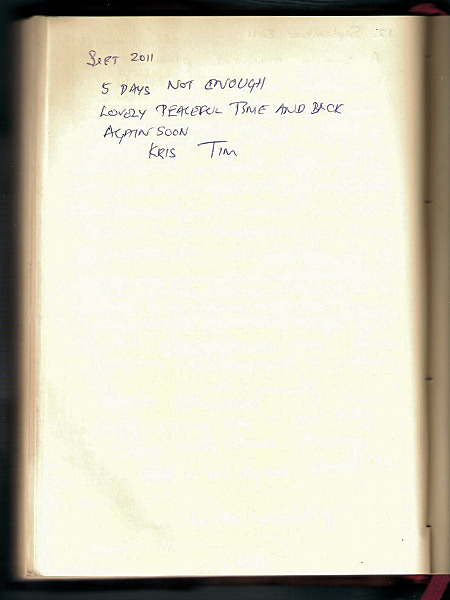 Sept 2011
5 DAYS NOT ENOUGH
LOVELY PEACEFUL TIME AND BACK
AGAIN SOON
KRIS TIM